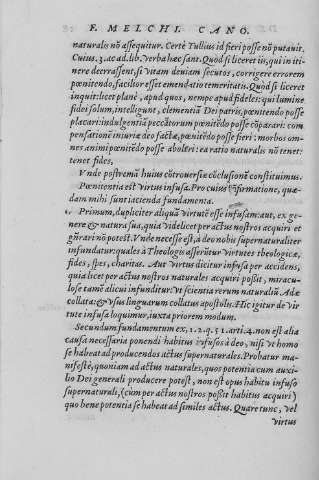 F. MELCHI. CANO.
naturalis nō assequitur. Certè Tullius id fieri posse nō putauit.
Cuius. 3. ac ad. lib. verba hæc sunt. Quod si liceret iis, qui in iti-
nere decrrassent, si vitam deniam secutos, corrigere errorem
pœnitendo, facilior esset emendatio temeritatis. Quod si liceret
inquit: licet planè, apud quos, nempe apud fideles: qui lumine
fidei solum, intelligunt, clementiā Dei patris, pœnitendo posse
placari: indulgentiā peccatorum pœnitēdo posse cōparari: com
pensationē iniuriæ deo factæ, pœnitēdo posse fieri: morbos om-
nes animi pœnitēdo posse aboleri: ea ratio naturalis nō tenet:
tenet fides.
Vnde postremū huius cōtrouersiæ cōclusionē constituimus.
Pœnitentia est virtus infusa. Pro cuius cōfirmatione, quæ-
dam mihi sunt iacienda fundamenta.
1. Primum, dupliciter aliquā virtutē esse infusam: aut, ex ge-
nere & natura sua, quia videlicet per actus nostros acquiri et
gn̄rari nō potest. Vnde necesse est, à deo nobis supernaturaliter
infundatur: quales à Theologis asserūtur virtutes theologicæ,
fides, spes, charitas. Aut virtus dicitur infusa per accidens,
quia licet per actus nostros naturales acquiri possit, miracu-
lose tamē alicui infunditur: vt scientia rerum naturaliū Adæ
collata: & vsus linguarum collatus apostolis. Hic igitur de vir
tute infusa loquimur, iuxta priorem modum.
Secundum fundamentum ex, 1. 2. q. 51. arti. 4. non est alia
causa necessaria ponendi habitus infusos à deo, nisi vt homo
se habeat ad producendos actus supernaturales. Probatur ma-
nifestè, quoniam ad actus naturales, quos potentia cum auxi-
lio Dei generali producere potest, non est opus habitu infuso
supernaturali, (cum per actus nostros possit habitus acquiri)
quo bene potentia se habeat ad similes actus. Quare tunc, vel
virtus